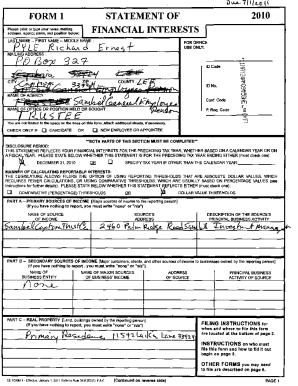 Due 7/1/2011
FORM 1
STATEMENT OF
2010
FINANCIAL INTERESTS
Please print or type your name, mailing
address, agency name, and position below:
LAST NAME -- FIRST NAME -- MIDDLE NAME
PYLE Richard Ernest
MAILING ADDRESS
PO Box 327
FOR OFFICE
USE ONLY:
ID Code
ID No.
Conf. Code
P. Req. Code
COUNTY
LEE
NAME OF AGENCY
Sanibel General Employees
NAME OF OFFICE OR POSITION HELD OR SOUGHT
TRUSTEE
You are not limited to the space on the lines on this form. Attach additional sheets, if necessary.
CHECK ONLY IF CANDIDATE OR NEW EMPLOYEE OR APPOINTEE
**BOTH PARTS OF THIS SECTION MUST BE COMPLETED**
DISCLOSURE PERIOD:
THIS STATEMENT REFLECTS YOUR FINANCIAL INTERESTS FOR THE PRECEDING TAX YEAR, WHETHER BASED ON A CALENDAR YEAR OR ON
A FISCAL YEAR. PLEASE STATE BELOW WHETHER THIS STATEMENT IS FOR THE PRECEDING TAX YEAR ENDING EITHER (must check one):
DECEMBER 31, 2010 OR SPECIFY TAX YEAR IF OTHER THAN THE CALENDAR YEAR:
MANNER OF CALCULATING REPORTABLE INTERESTS:
THE LEGISLATURE ALLOWS FILERS THE OPTION OF USING REPORTING THRESHOLDS THAT ARE ABSOLUTE DOLLAR VALUES, WHICH
REQUIRES FEWER CALCULATIONS, OR USING COMPARATIVE THRESHOLDS, WHICH ARE USUALLY BASED ON PERCENTAGE VALUES (see
instructions for further details). PLEASE STATE BELOW WHETHER THIS STATEMENT REFLECTS EITHER (must check one):
COMPARATIVE (PERCENTAGE) THRESHOLDS OR DOLLAR VALUE THRESHOLDS
PART A -- PRIMARY SOURCES OF INCOME
(If you have nothing to report, you must write "none" or "n/a")
NAME OF SOURCE
OF INCOME
SOURCE'S
ADDRESS
DESCRIPTION OF THE SOURCE'S
PRINCIPAL BUSINESS ACTIVITY
2460 Palm Ridge Road
PART B -- SECONDARY SOURCES OF INCOME
(If you have nothing to report, you must write "none" or "n/a")
NAME OF
BUSINESS ENTITY
NAME OF MAJOR SOURCES
OF BUSINESS' INCOME
ADDRESS
OF SOURCE
PRINCIPAL BUSINESS
ACTIVITY OF SOURCE
None
PART C -- REAL PROPERTY [Land, buildings owned by the reporting person]
(If you have nothing to report, you must write "none" or "n/a")
Primary Residence
FILING INSTRUCTIONS for
when and where to file this form
are located at the bottom of page 2.
INSTRUCTIONS on who must
file this form and how to fill it out
begin on page 3.
OTHER FORMS you may need
to file are described on page 6.
(Continued on reverse side)
PAGE 1